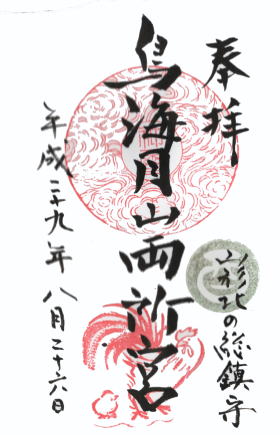 奉拝
山形北の総鎮守
鳥海月山両所宮
平成二十九年八月二十六日